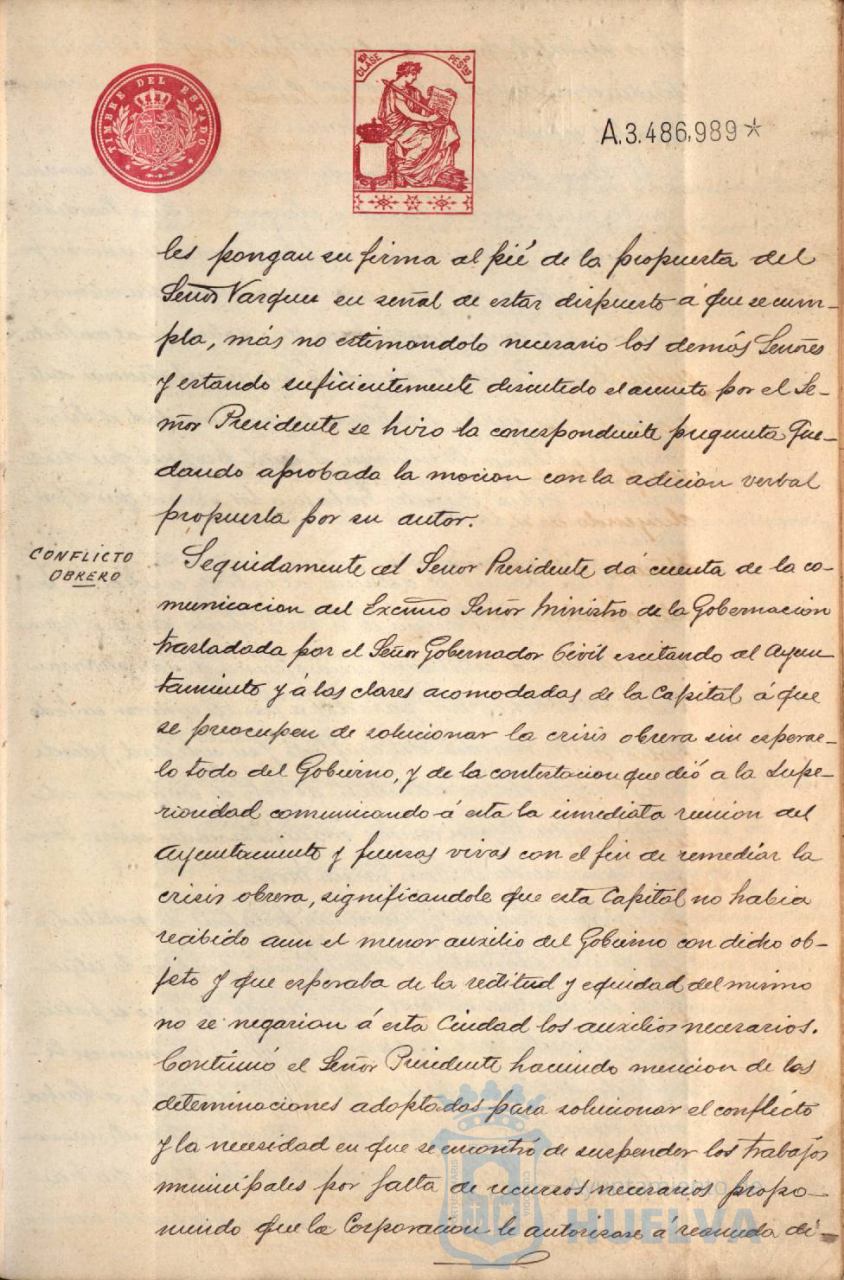 TIMBRE DEL ESTADO
10ª CLASE
2 PESTAS
A.3.486,989*
les pongan su firma al pié de la propuesta del
Señor Vazquez en señal de estar dispuesto á que se cum-
pla, más no estimandolo necesario los demás Señores
y estando suficientemente discutido el asunto por el Se-
ñor Presidente se hizo la correspondiente pregunta que-
dando aprobada la mocion con la adicion verbal
propuesta por su autor.
CONFLICTO
OBRERO
Seguidamente el Señor Presidente dá cuenta de la co-
municacion del Excmo Señor Ministro de la Gobernacion
trasladada por el Señor Gobernador Civil escitando al Ayun
tamiento y á las clases acomodadas de la Capital á que
se preocupen de solucionar la crisis obrera sin esperar-
lo todo del Gobierno, y de la contestacion que dió a la Supe-
rioridad comunicando á esta la inmediata reunion del
Ayuntamiento y fuerzas vivas con el fin de remediar la
crisis obrera, significandole que esta Capital no habia
recibido aun el menor auxilio del Gobierno con dicho ob-
jeto y que esperaba de la rectitud y equidad del mismo
no se negarian á esta Ciudad los auxilios necesarios.
Continuó el Señor Presidente haciendo mencion de las
determinaciones adoptadas para solucionar el conflicto
y la necesidad en que se encontró de suspender los trabajos
municipales por falta de recursos necesarios propo-
niendo que la Corporacion le autorizase á reanuda di-
HUELVA